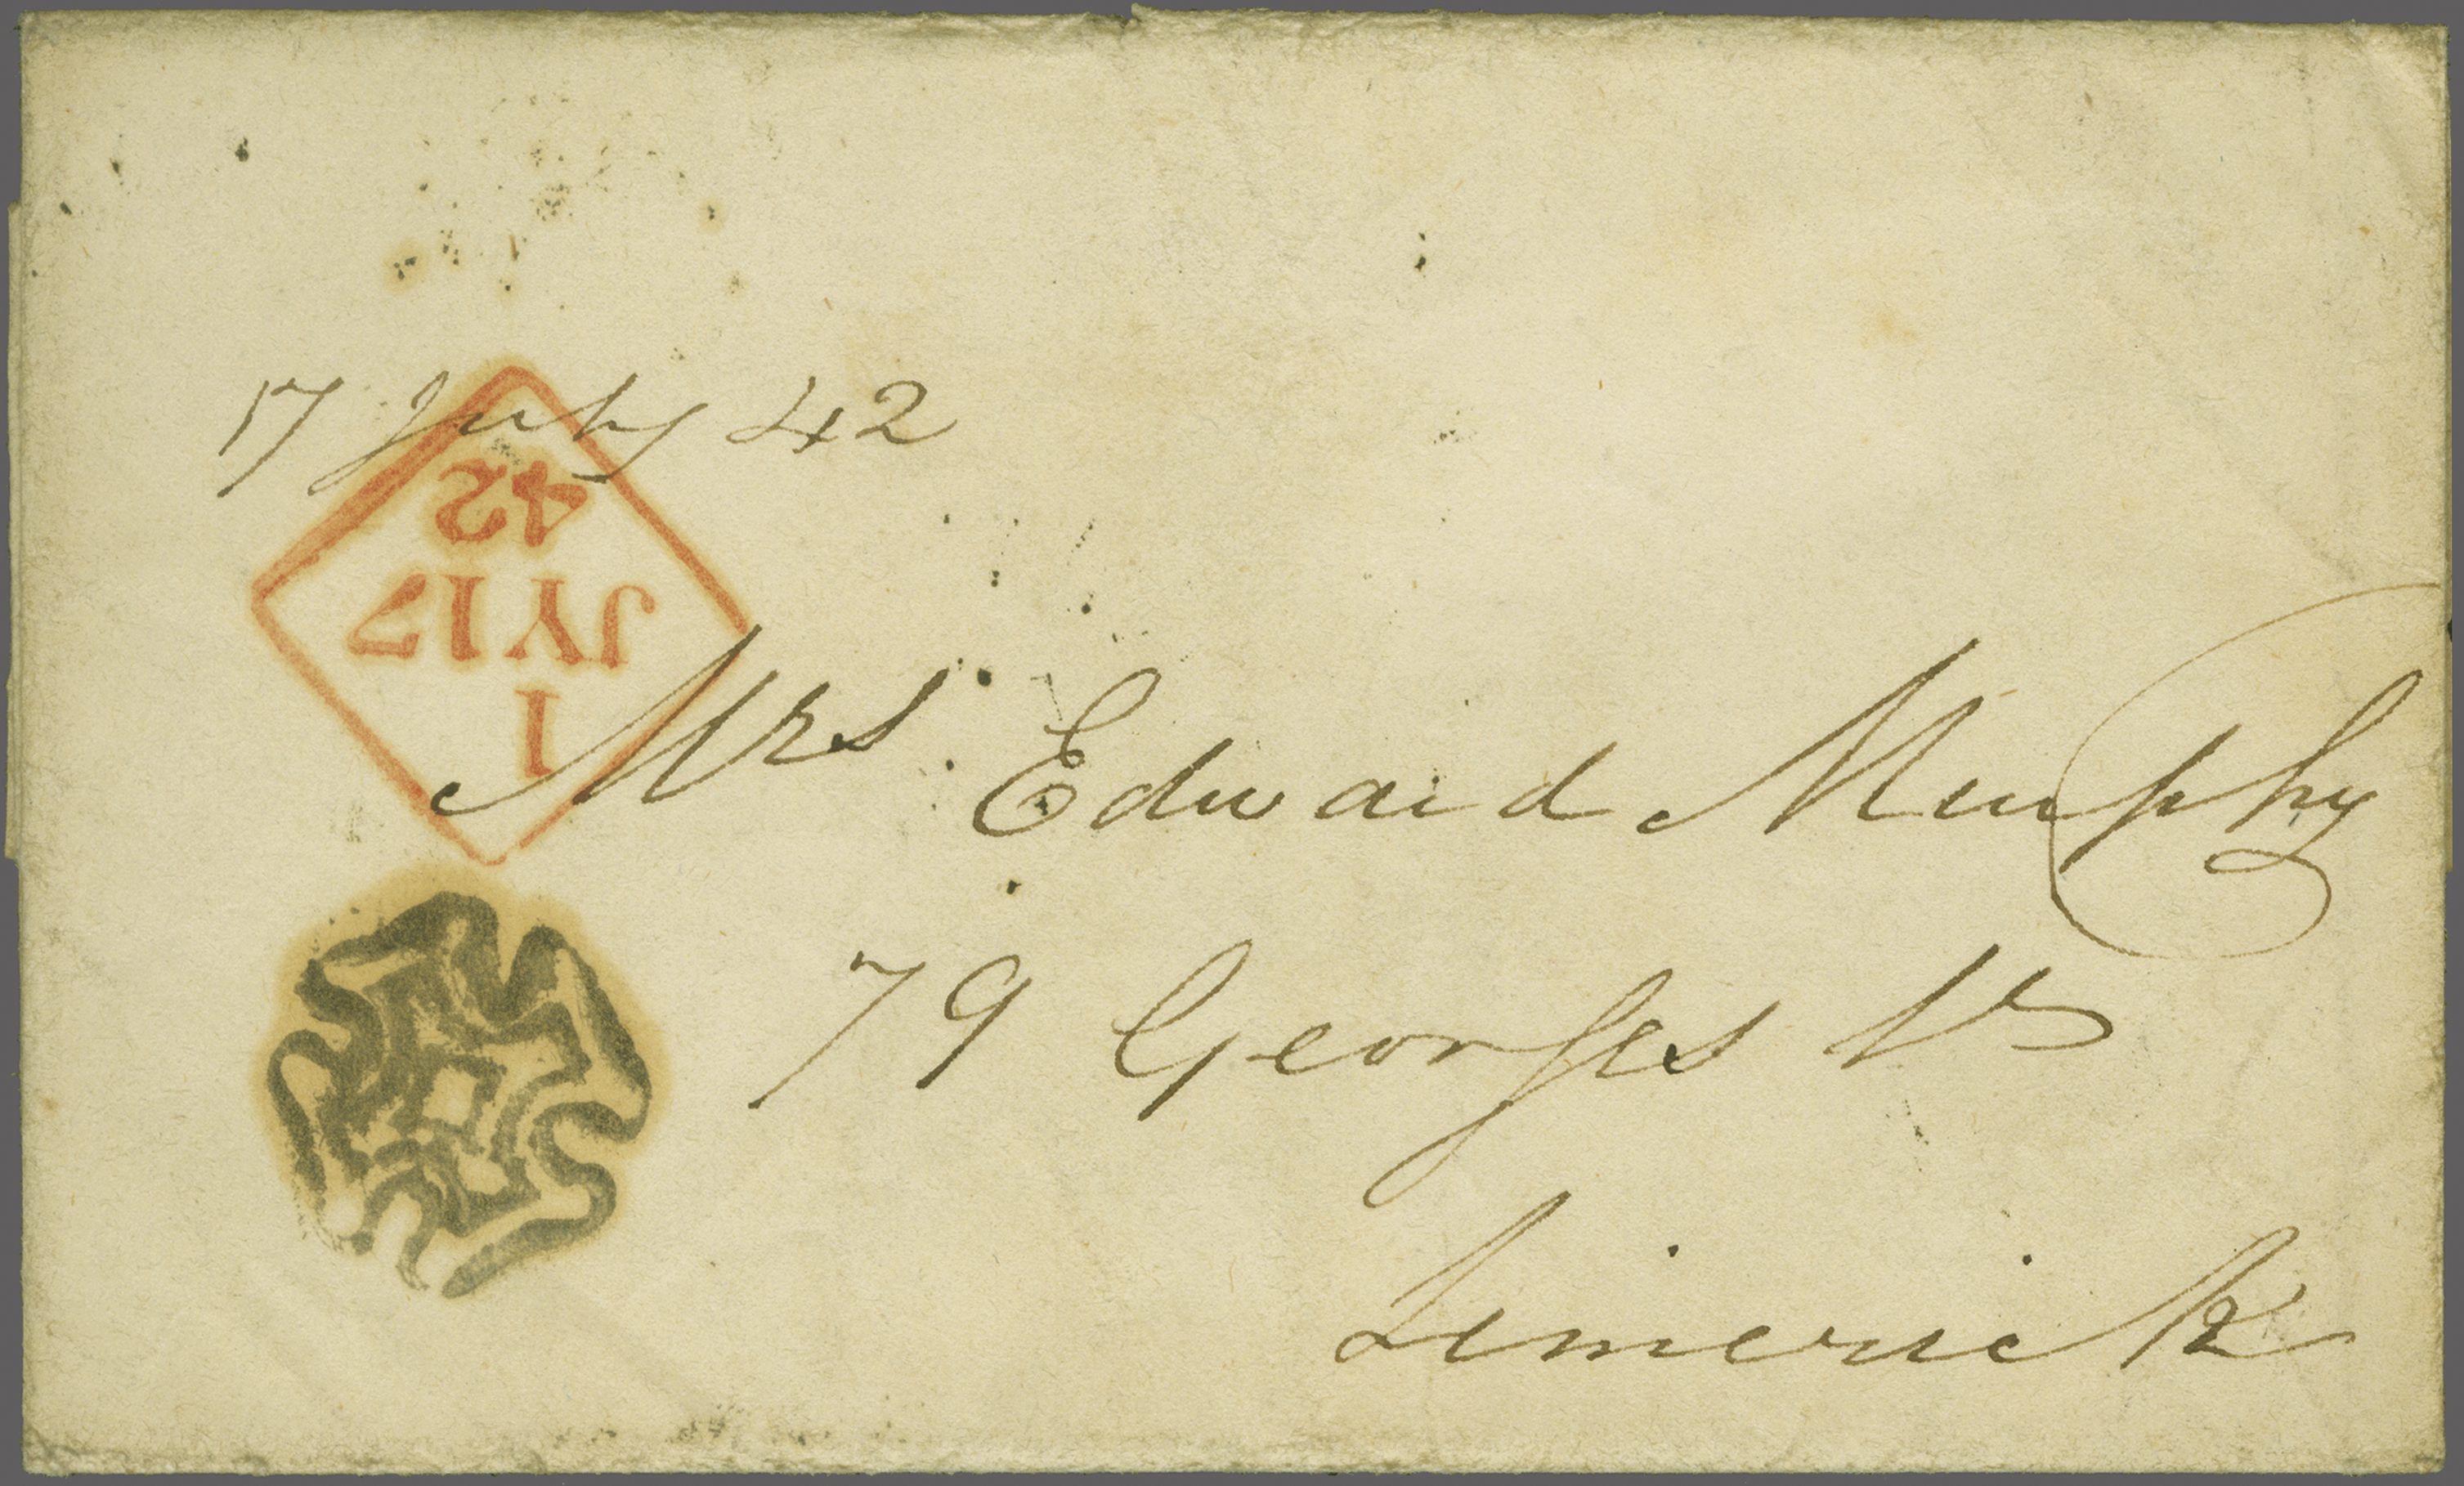 17 July 42
42
JY17
1
Mrs Edward Murphy
79 Georges St
Limerick